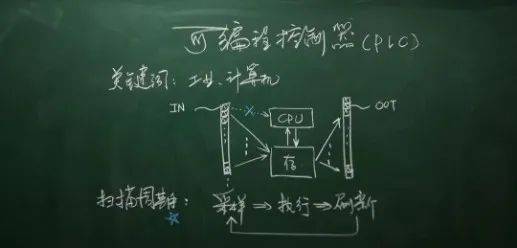 可编程控制器(PLC)
关键词：工业、计算机
IN
CPU
OUT
存
扫描周期：采样⇒执行⇒刷新